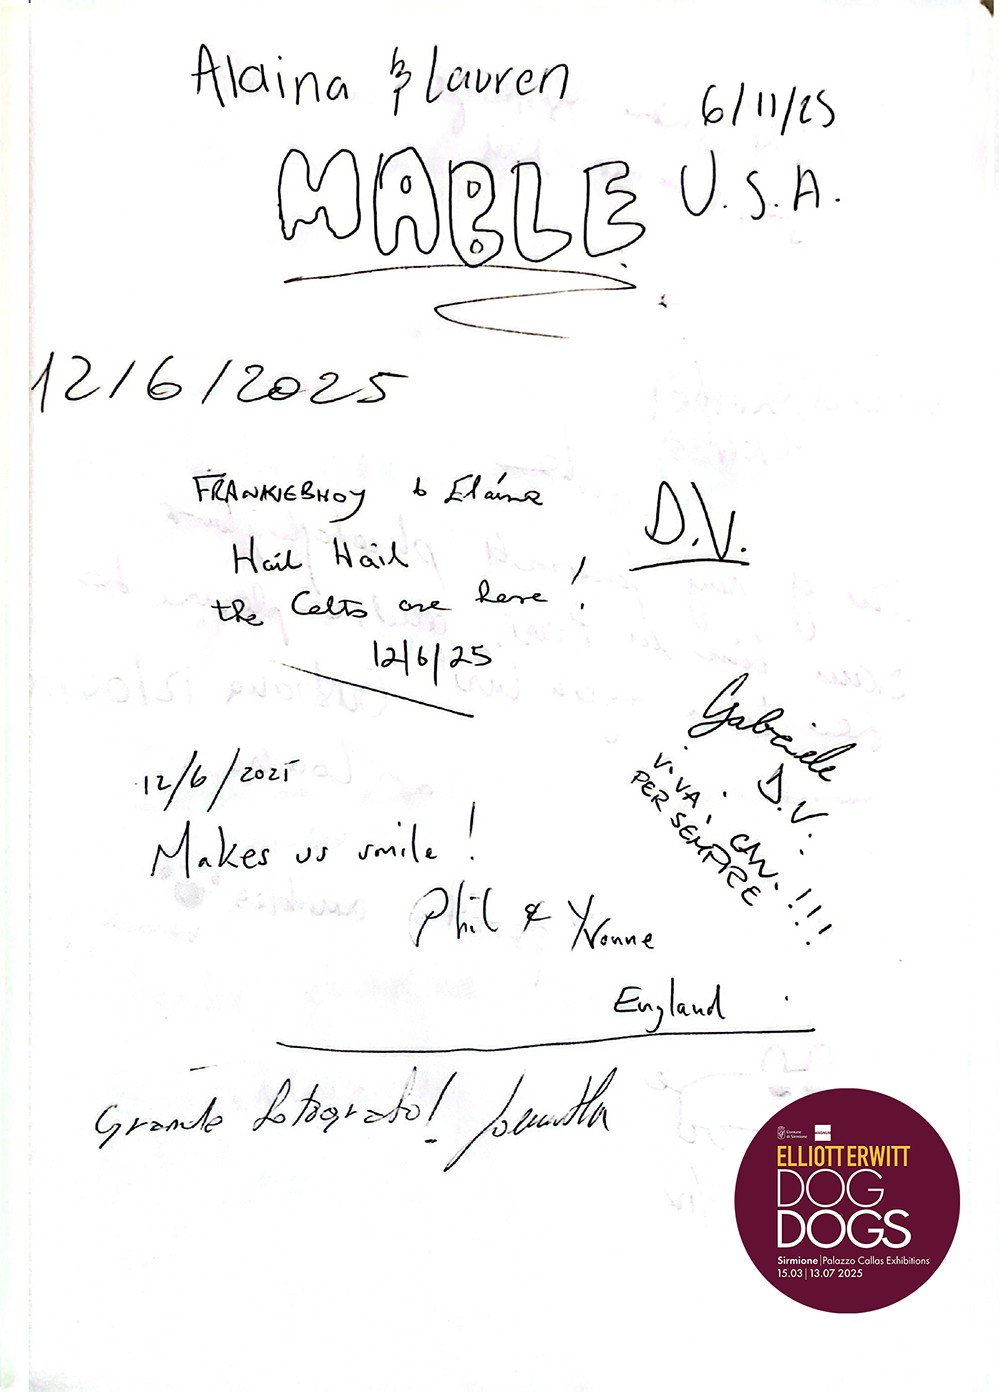 Alaina & Lauren
6/11/25
MABLE
U.S.A.
12/6/2025
FRANKIEBHOY & Elaine
Hail Hail
the Celts are here!
12/6/25
D.V.
Gabriele
D.V.
VIVA I CANI !!!
PER SEMPRE
12/6/2025
Makes us smile!
Phil & Yvonne
England
Grande fotografo!
Comune
di Sirmione
MAGNUM
ELLIOTT ERWITT
DOG
DOGS
Sirmione | Palazzo Callas Exhibitions
15.03 | 13.07 2025